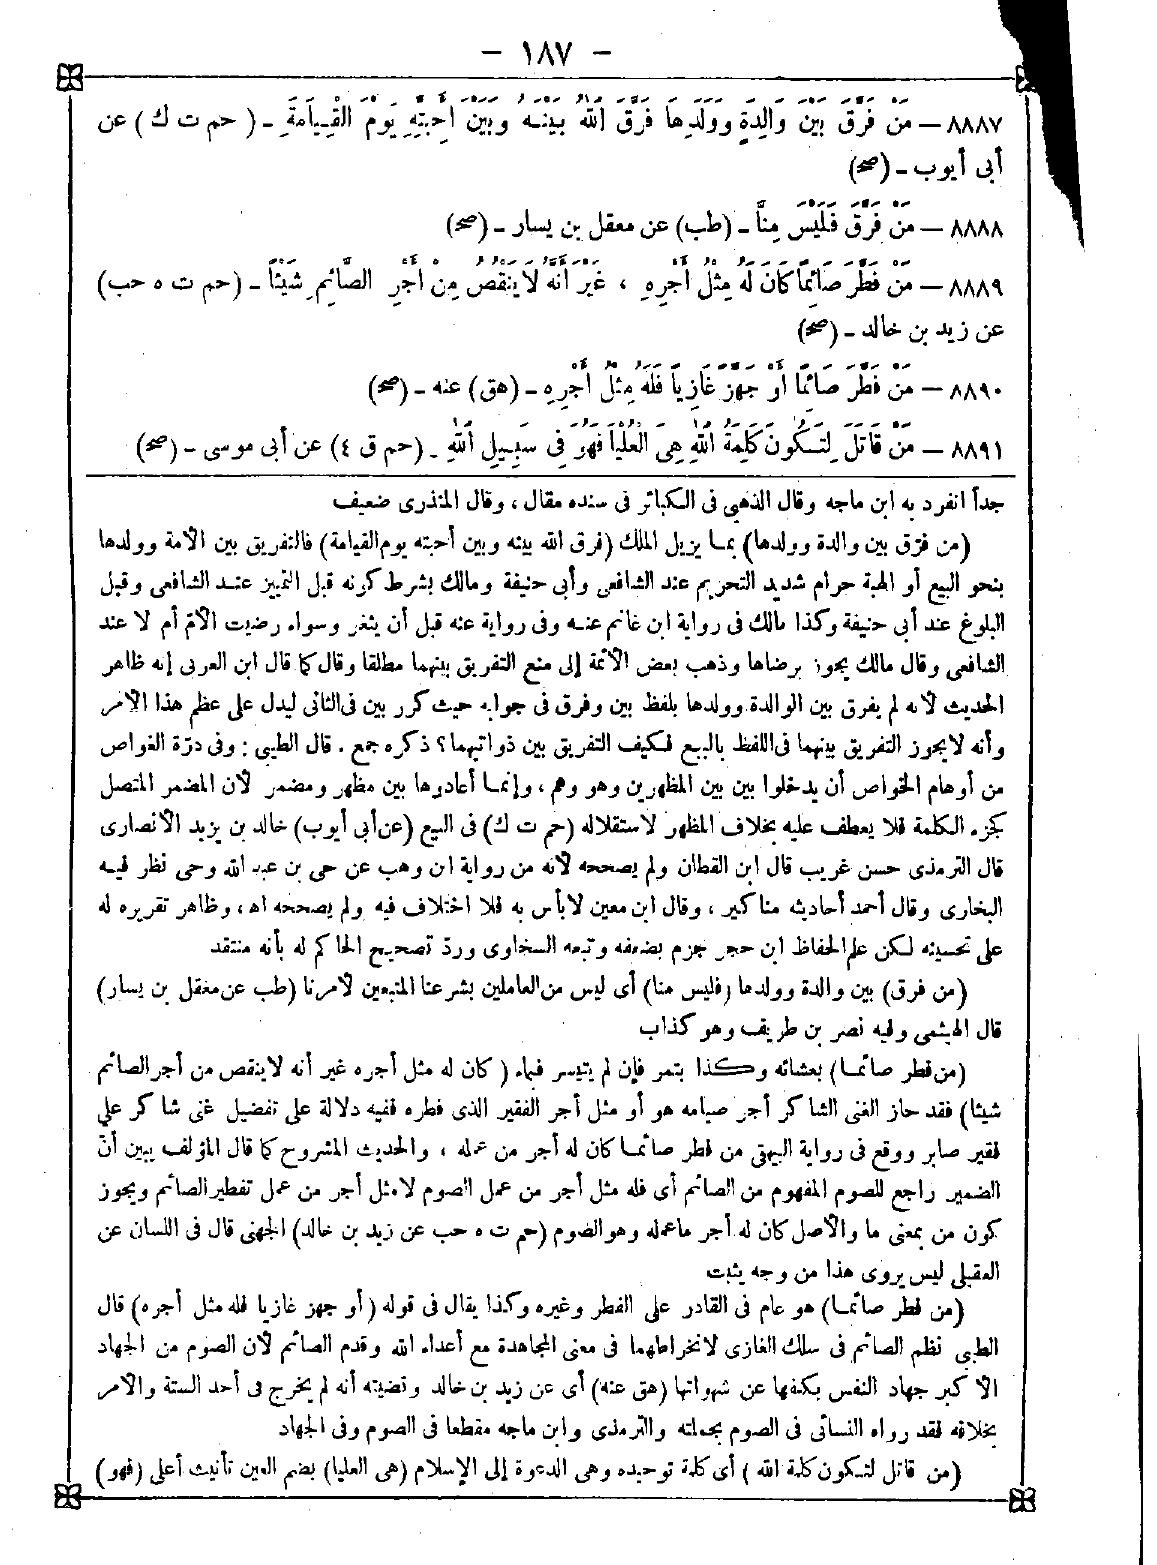 - ١٨٧ -
٨٨٨٧ — مَنْ فَرَّقَ بَيْنَ وَالِدَةٍ وَوَلَدِهَا فَرَّقَ اللهُ بَيْنَهُ وَبَيْنَ أَحِبَّتِهِ يَوْمَ الْقِيَامَةِ - (حم ت ك) عن
أبى أيوب - (صح)
٨٨٨٨ — مَنْ فَرَّقَ فَلَيْسَ مِنَّا - (طب) عن معقل بن يسار - (صح)
٨٨٨٩ — مَنْ فَطَّرَ صَائِمًا كَانَ لَهُ مِثْلُ أَجْرِهِ ، غَيْرَ أَنَّهُ لَا يَنْقُصُ مِنْ أَجْرِ الصَّائِمِ شَيْئًا - (حم ت ه حب)
عن زيد بن خالد - (صح)
٨٨٩٠ — مَنْ فَطَّرَ صَائِمًا أَوْ جَهَّزَ غَازِيًا فَلَهُ مِثْلُ أَجْرِهِ - (هق) عنه - (صح)
٨٨٩١ — مَنْ قَاتَلَ لِتَكُونَ كَلِمَةُ اللهِ هِىَ الْعُلْيَا فَهُوَ فِى سَبِيلِ اللهِ - (حم ق ٤) عن أبى موسى - (صح)
جداً انفرد به ابن ماجه وقال الذهبى فى الكبائر فى سنده مقال ، وقال المنذرى ضعيف
(من فرّق بين والدة وولدها) بمـا يزيل الملك (فرق الله بينه وبين أحبته يوم القيامة) فالتفريق بين الأمة وولدها
بنحو البيع أو الهبة حرام شديد التحريم عند الشافعى وأبى حنيفة ومالك بشرط كونه قبل التمييز عنـد الشافعى وقبل
البلوغ عند أبى حنيفة وكذا مالك فى رواية ابن غانم عنـه وفى رواية عنه قبل أن يثغر وسواء رضيت الأم أم لا عند
الشافعى وقال مالك يجوز برضاها وذهب بعض الأئمة إلى منع التفريق بينهما مطلقا وقال كما قال ابن العربى إنه ظاهر
الحديث لأنه لم يفرق بين الوالدة وولدها بلفظ بين وفرق فى جوابه حيث كرر بين فى الثانى ليدل على عظم هذا الأمر
وأنه لا يجوز التفريق بينهما فى اللفظ بالبيع فكيف التفريق بين ذواتيهما؟ ذكره جمع . قال الطيبى : وفى درّة الغواص
من أوهام الخواص أن يدخلوا بين بين المظهرين وهو وهم ، وإنمـا أعادوها بين مظهر ومضمر لأن المضمر المتصل
كجزء الكلمة فلا يعطف عليه بخلاف المظهر لاستقلاله (حم ت ك) فى البيع (عن أبى أيوب) خالد بن يزيد الأنصارى
قال الترمذى حسن غريب قال ابن القطان ولم يصححه لأنه من رواية ابن وهب عن حى بن عبد الله وحى نظر فيـه
البخارى وقال أحمد أحاديثه مناكير ، وقال ابن معين لا بأس به فلا اختلاف فيه ولم يصححه اه ، وظاهر تقريره له
على تحسينه لكن علم الحفاظ ابن حجر جزم بضعفه وتبعه السخاوى وردّ تصحيح الحاكم له بأنه منتقد
(من فرق) بين والدة وولدها (فليس منا) أى ليس من العاملين بشرعنا المتبعين لأمرنا (طب عن معقل بن يسار)
قال الهيثمى وفيه نصر بن طريف وهو كذاب
(من فطر صائمـا) بعشائه وكـذا بتمر فإن لم يتيسر فماء ( كان له مثل أجره غير أنه لا ينقص من أجر الصائم
شيئا) فقد حاز الغنى الشاكر أجر صيامه هو أو مثل أجر الفقير الذى فطره ففيه دلالة على تفضيل غنى شاكر على
فقير صابر ووقع فى رواية البيهقى من فطر صائمـا كان له أجر من عمله ، والحديث المشروح كما قال المؤلف يبين أنّ
الضمير راجع للصوم المفهوم من الصائم أى فله مثل أجر من عمل الصوم لا مثل أجر من عمل تفطير الصائم ويجوز
كون من بمعنى ما والأصل كان له أجر ما عمله وهو الصوم (حم ت ه حب عن زيد بن خالد) الجهنى قال فى اللسان عن
العقيلى ليس يروى هذا من وجه يثبت
(من فطر صائمـا) هو عام فى القادر على الفطر وغيره وكذا يقال فى قوله (أو جهز غازيا فله مثل أجره) قال
الطيبى نظم الصائم فى سلك الغازى لانخراطهما فى معنى المجاهدة مع أعداء الله وقدم الصائم لأن الصوم من الجهاد
الأكبر جهاد النفس بكفها عن شهواتها (هق عنه) أى عن زيد بن خالد وقضيته أنه لم يخرج فى أحد الستة والأمر
بخلافه فقد رواه النسائى فى الصوم بجملته والترمذى وابن ماجه مقطعا فى الصوم وفى الجهاد
(من قاتل لتكون كلمة الله ) أى كلمة توحيده وهى الدعوة إلى الإسلام (هى العليا) بضم العين تأنيث أعلى (فهو)